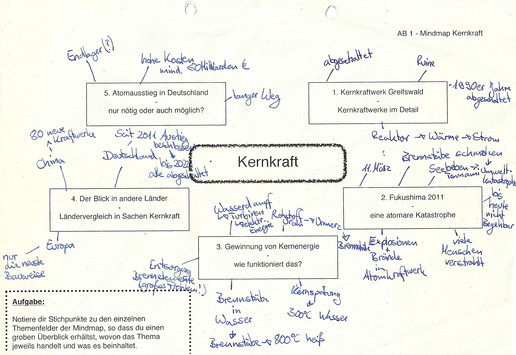 AB 1 - Mindmap Kernkraft
Endlager (?)
hohe Kosten
mind.
Milliarden €
abgeschaltet
Ruine
5. Atomausstieg in Deutschland
-
nur nötig oder auch möglich?
langer Weg
1. Kernkraftwerk Greifswald
-
Kernkraftwerke im Detail
1990er Jahre
abgeschaltet
80 neue
Kraftwerke
China
Seit 2011 Ausstieg
beschlossen
Deutschland
bis 2022
alle abgeschaltet
Reaktor → Wärme → Strom
Kernkraft
11. März
Brennstäbe schmelzen
Seebeben
Tsunami
Umwelt-
katastrophe
4. Der Blick in andere Länder
-
Ländervergleich in Sachen Kernkraft
2. Fukushima 2011
-
eine atomare Katastrophe
bis
heute
nicht
Begehbar
Europa
nur
die neuste
Bauweise
Wasserdampf
Turbinen
Energie
Rohstoff
Uran
3. Gewinnung von Kernenergie
-
wie funktioniert das?
Brennstäbe
Explosionen
Brände
im
Atomkraftwerk
viele
Menschen
verstrahlt
Entsorgung
Brennelemente
Brennstäbe
in
Wasser
Brennstäbe → 800°C heiß
Kernspaltung
300°C Wasser
Aufgabe:
Notiere dir Stichpunkte zu den einzelnen
Themenfelder der Mindmap, so dass du einen
groben Überblick erhältst, wovon das Thema
jeweils handelt und was es beinhaltet.